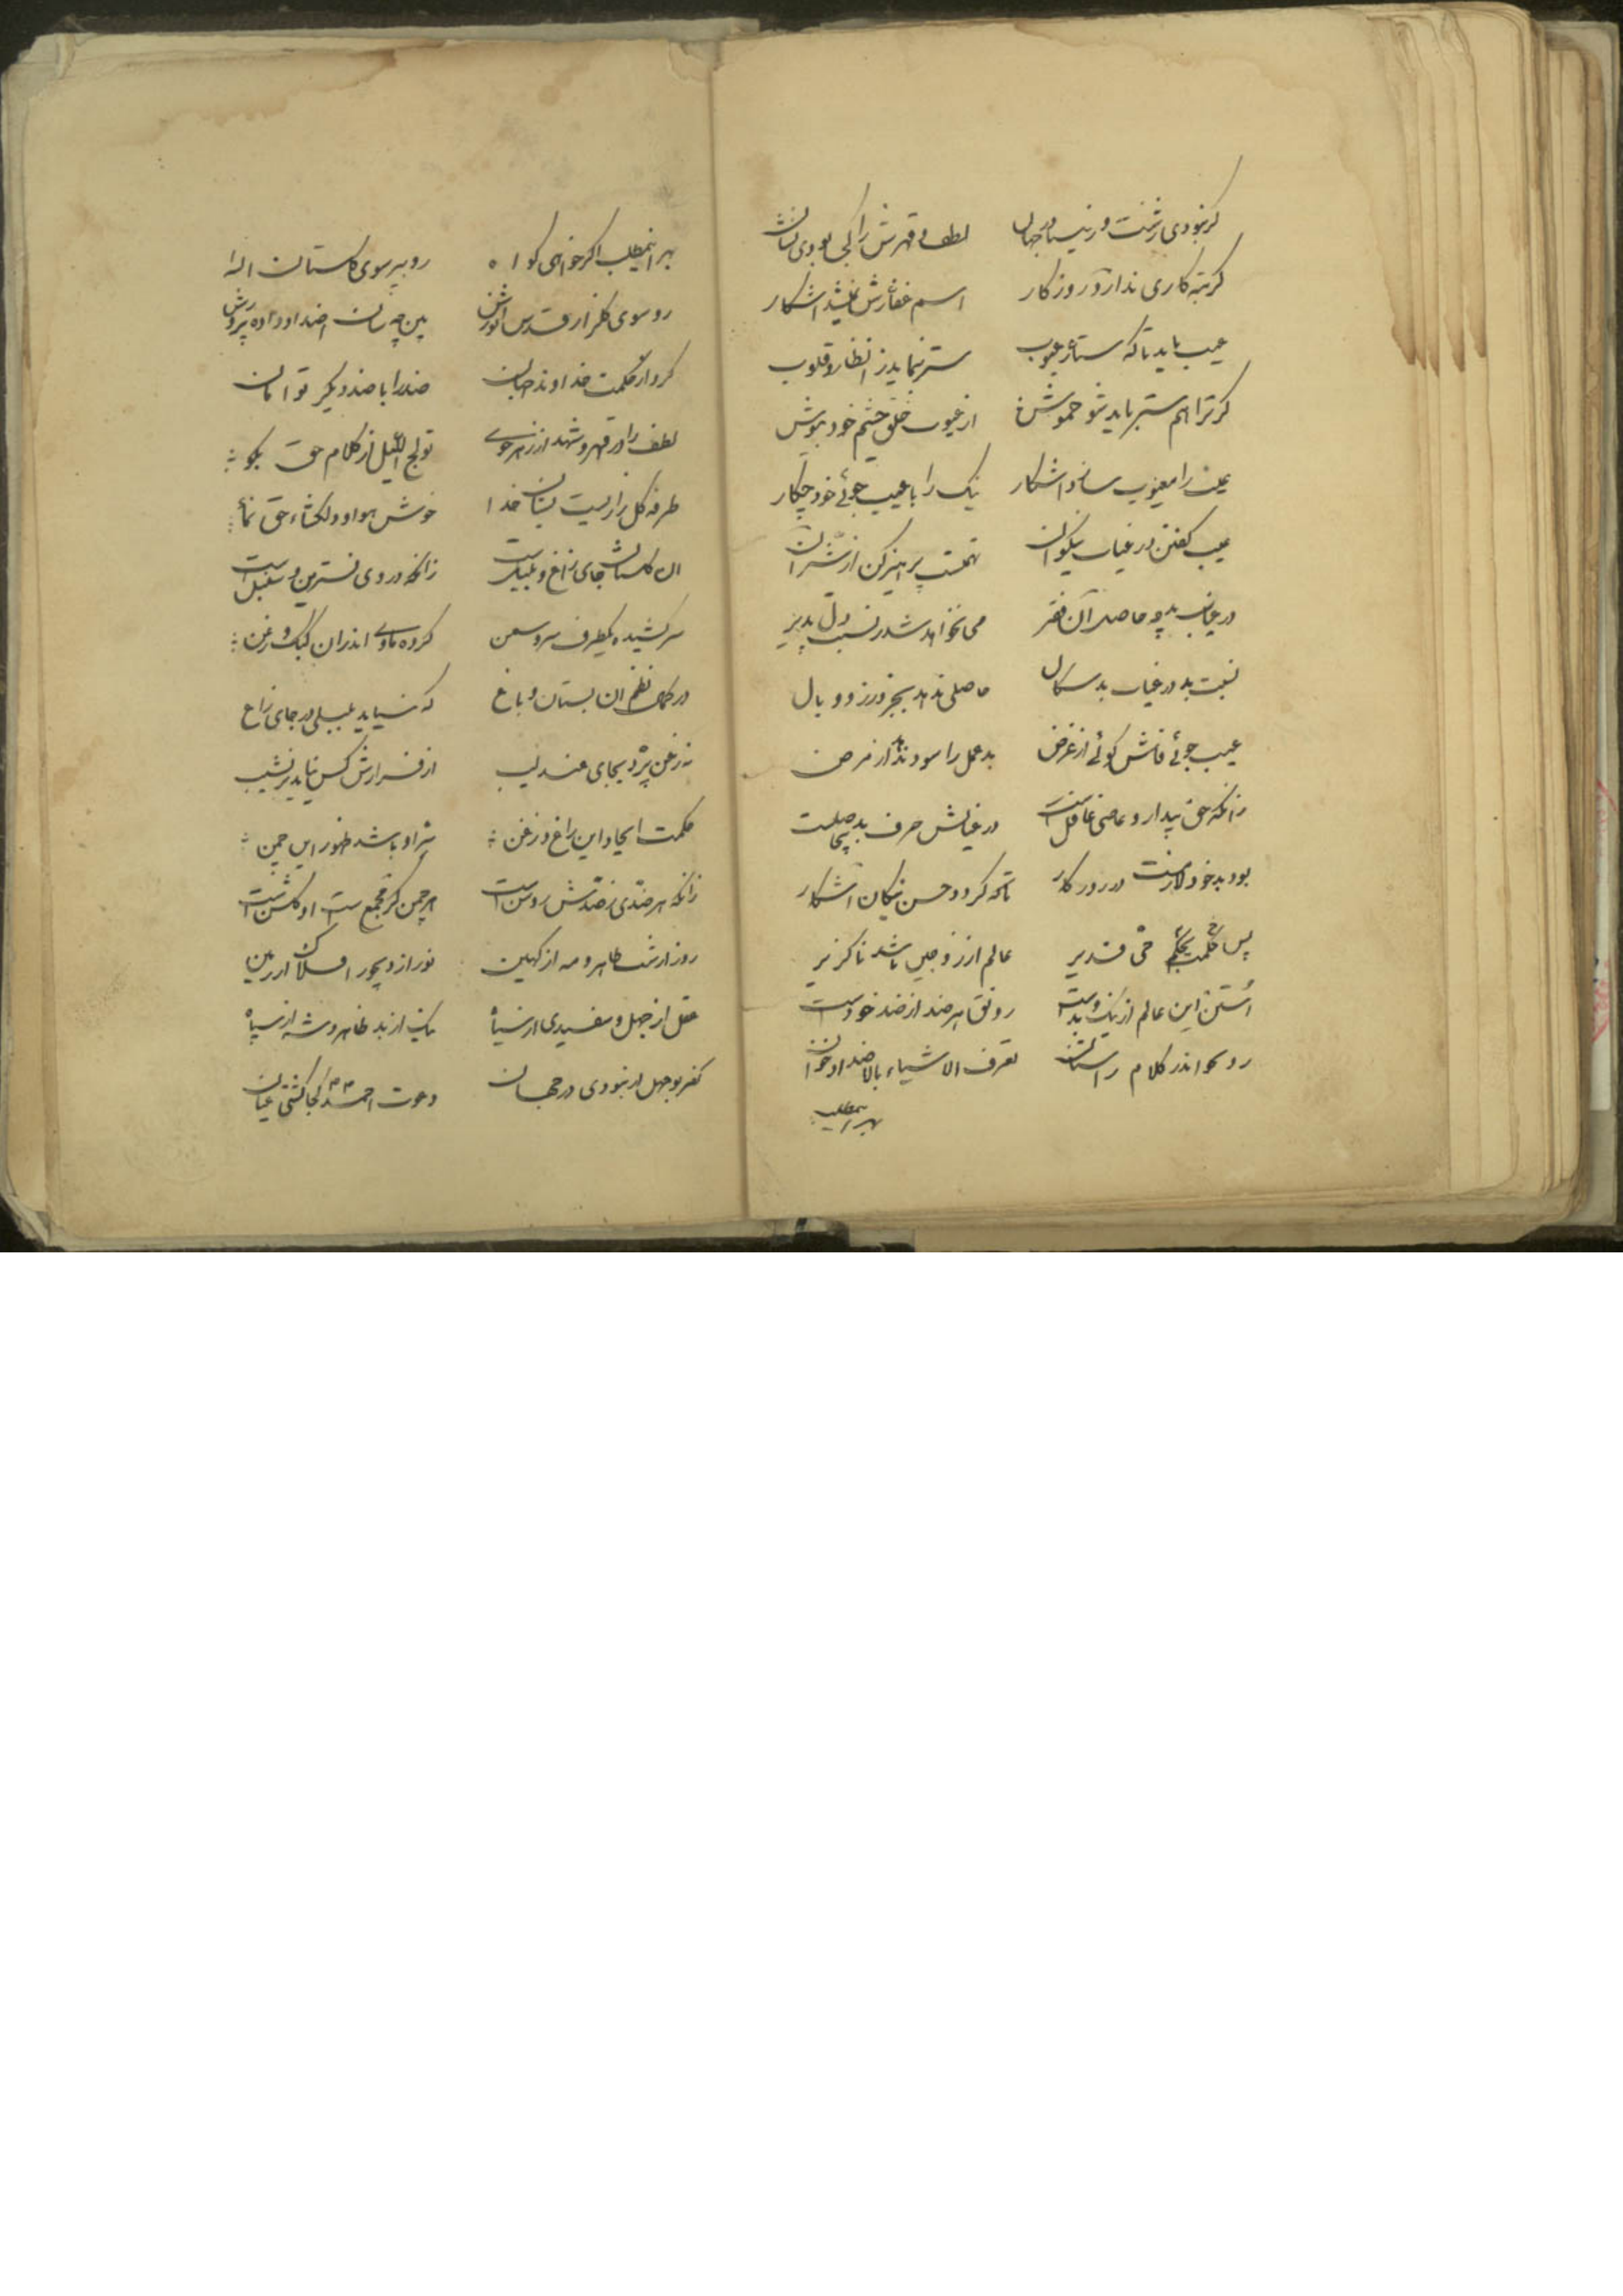 گر نبودی زشت و زیبا در جهان لطف و قهرش را کجا بودی نشان
گر تبه کاری ندارد روزگار اسم غفارش نمیشد اشکار
عیب باید تا که ستار عیوب ستر بنماید ز انظار و قلوب
گر ترا هم ستر باید شو خموش از عیوب خلق چشم خود بپوش
را معیوب سازد اشکار نیک را با عیب جوئی خود چکار
عیب گفتن در غیاب نیکوان تهمتست پرهیز کن از
در غیاب بد چه حاصل می نخواهد شد دل پذیر
نسبت بد در غیاب بد سکال حاصلی ندهد بجز وزر و وبال
عیب جوئی فاش گوئی از غرض بد عمل را سود ندهد از مرض
زانکه حق بیدار و عاصی غافل است در غیابش حرف بد بیحاصلست
بود بد خود در روزکار تا که گردد حسن نیکان آشکار
پس حی قدیر عالم از زوجین باشد ناگزیر
این عالم از نیک و بدست رونق هر ضد از ضد خودست
رو بخوان اندر کلام راستان تعرف الاشیاء بالاضداد خوان
بهر اینمطلب
بهر اینمطلب اگر خواهی گواه رو ببر سوی گلستان اله
رو سوی گلزار قدس بین چه سان اضداد داده پرورش
کرد از حکمت خداوند جهان ضد را با ضد دیگر توامان
لطف را در قهر و شهد از زهر جوی تولج اللیل از کلام حق بگو
طرفه گلزاریست بستان خدا خوش هوا و دلکشاء حق نما
ان گلستان جای زاغ و بلبلست زانکه در وی نسترین و سنبل است
سر کشیده یکطرف سرو سمن کرده ماوی اندران کبک و زغن
در کمال نظم ان بستان و باغ که نیاید بلبلی در جای زاغ
نه زغن پرد بجای عندلیب از فرازش کس نیاید بر نشیب
حکمت ایجاد این زاغ و زغن سر او باشد ظهور این چمن
زانکه هر ضدی ز ضدش روشن است هر چمن گر مجمع ضد است او گلشن است
روز از شب ظاهر و مه از نور از دیجور افلاک از زمین
عقل از جهل و سفیدی از سیاه نیک از بد ظاهر و شه از سپاه
کفر بوجهل ار نبودی در جهان دعوت احمد کجا گشتی عیان